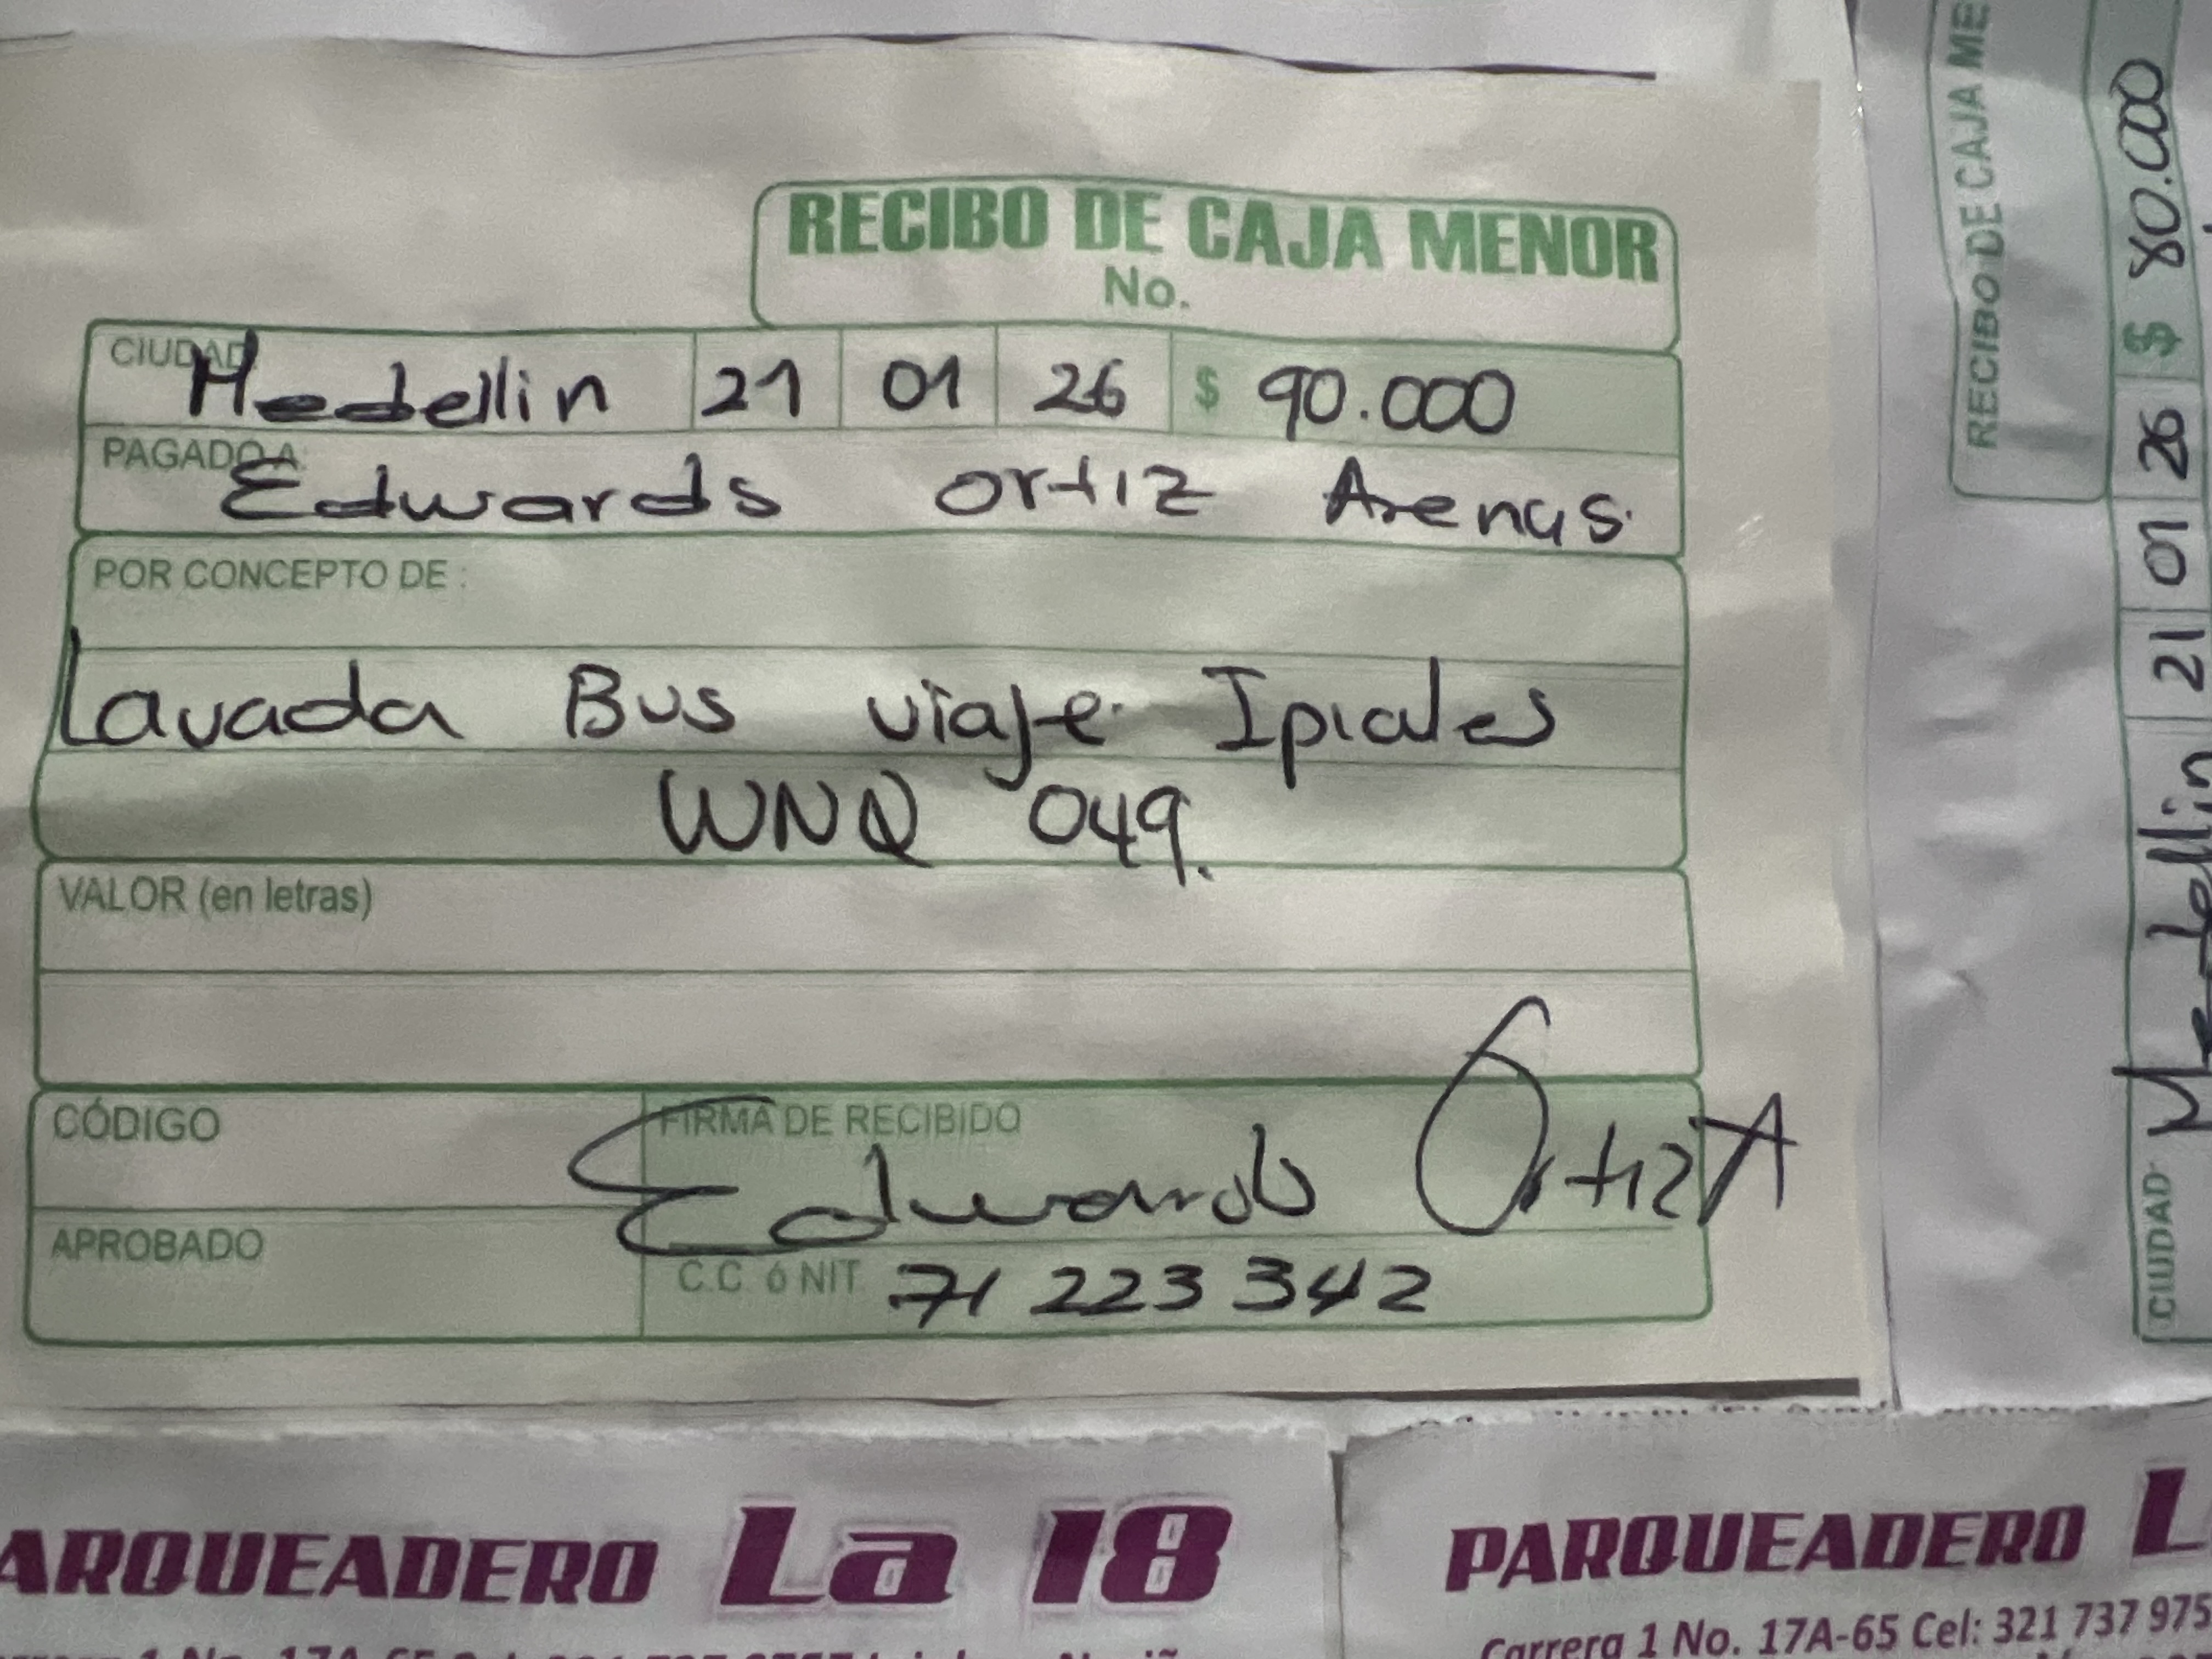 RECIBO DE CAJA MENOR
No.
CIUDAD Medellin 21 01 26 $ 90.000
PAGADO A: Edwards Ortiz Arenas.
POR CONCEPTO DE :
Lavada Bus viaje Ipiales
WNQ 049.
VALOR (en letras)
CÓDIGO
FIRMA DE RECIBIDO
Edwards Ortiz A
APROBADO
C.C. ó NIT. 71 223 342
RECIBO DE CAJA ME
CIUDAD Medellin 21 01 26 $ 80.000
ARQUEADERO La 18
PARQUEADERO L
Carrera 1 No. 17A-65 Cel: 321 737 975